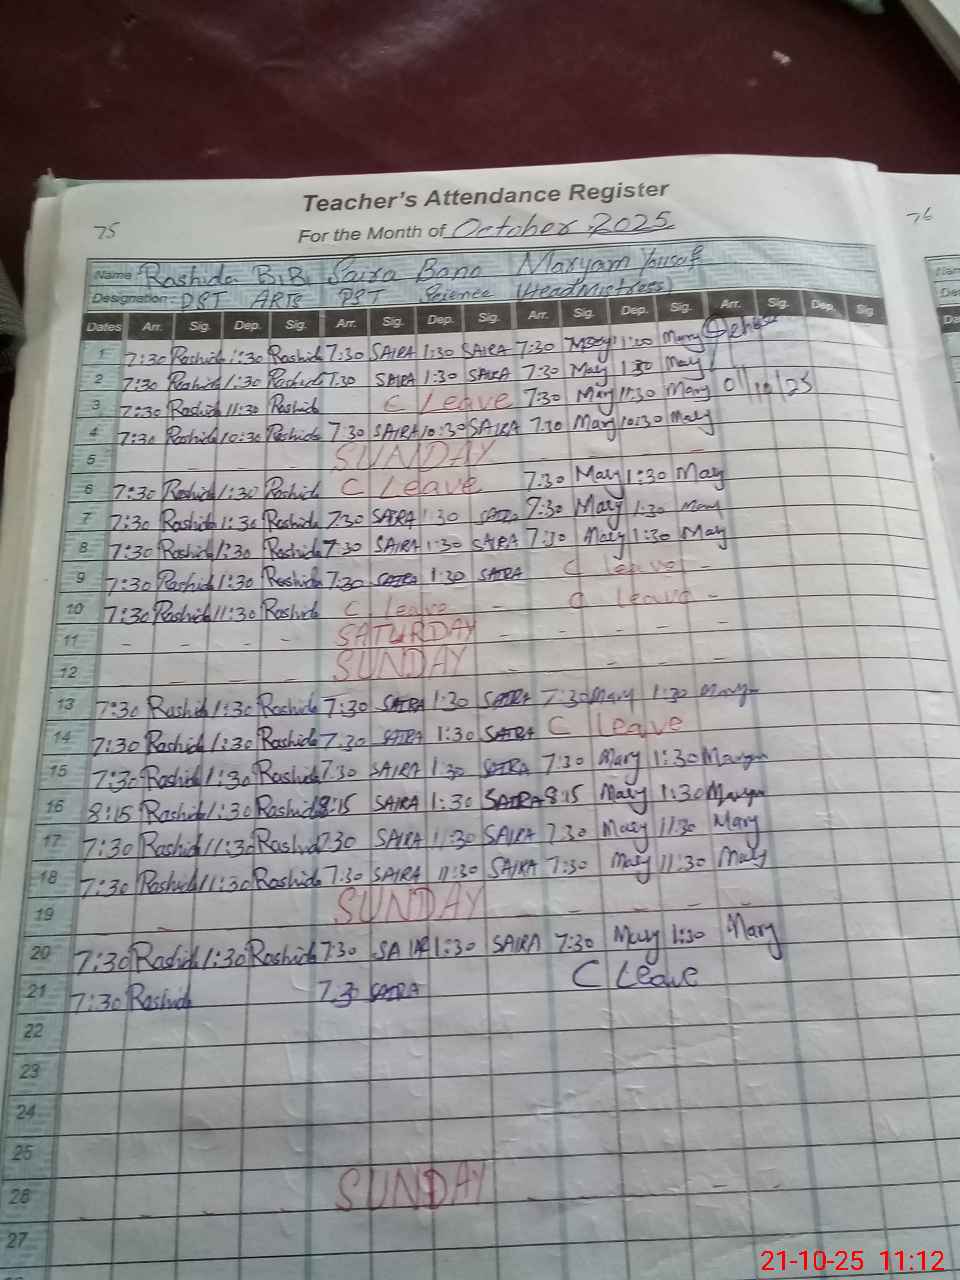 Teacher's Attendance Register
75
76
For the Month of October 2025
Name: Rashida B.B. Saira Bano Maryam Yusaf
Designation: PST ARTS PST Science (HeadMistress)
Dates Arr. Sig. Dep. Sig. Arr. Sig. Dep. Sig. Arr. Sig. Dep. Sig. Arr. Sig. Dep. Sig.
1 7:30 Rashid 1:30 Rashid 7:30 SAIRA 1:30 SAIRA 7:30 Mary 1:30 Mary
2 7:30 Rashid 1:30 Rashid 7:30 SAIRA 1:30 SAIRA 7:30 Mary 1:30 Mary
3 7:30 Rashid 11:30 Rashid C Leave 7:30 Mary 11:30 Mary 01/10/25
4 7:30 Rashid 10:30 Rashid 7:30 SAIRA 10:30 SAIRA 7:30 Mary 10:30 Mary
5 - - - - SUNDAY - - - -
6 7:30 Rashid 1:30 Rashid C Leave 7:30 Mary 1:30 Mary
7 7:30 Rashid 1:30 Rashid 7:30 SAIRA 1:30 SAIRA 7:30 Mary 1:30 Mary
8 7:30 Rashid 1:30 Rashid 7:30 SAIRA 1:30 SAIRA 7:30 Mary 1:30 Mary
9 7:30 Rashid 1:30 Rashid 7:30 SAIRA 1:30 SAIRA C leave -
10 7:30 Rashid 11:30 Rashid C leave - C leave -
11 - - - - SATURDAY - - - - -
12 - - - - SUNDAY - - - - -
13 7:30 Rashid 1:30 Rashid 7:30 SAIRA 1:30 SAIRA 7:30 Mary 1:30 Mary
14 7:30 Rashid 1:30 Rashid 7:30 SAIRA 1:30 SAIRA C leave
15 7:30 Rashid 1:30 Rashid 7:30 SAIRA 1:30 SAIRA 7:30 Mary 1:30 Maryam
16 8:15 Rashid 1:30 Rashid 8:15 SAIRA 1:30 SAIRA 8:15 Mary 1:30 Maryam
17 7:30 Rashid 11:30 Rashid 7:30 SAIRA 11:30 SAIRA 7:30 Mary 11:30 Mary
18 7:30 Rashid 11:30 Rashid 7:30 SAIRA 11:30 SAIRA 7:30 Mary 11:30 Mary
19 - - SUNDAY - - - - -
20 7:30 Rashid 1:30 Rashid 7:30 SAIRA 1:30 SAIRA 7:30 Mary 1:30 Mary
21 7:30 Rashid 7:30 SAIRA C Leave
22
23
24
25
26 - - - - SUNDAY - - - - -
27
21-10-25 11:12